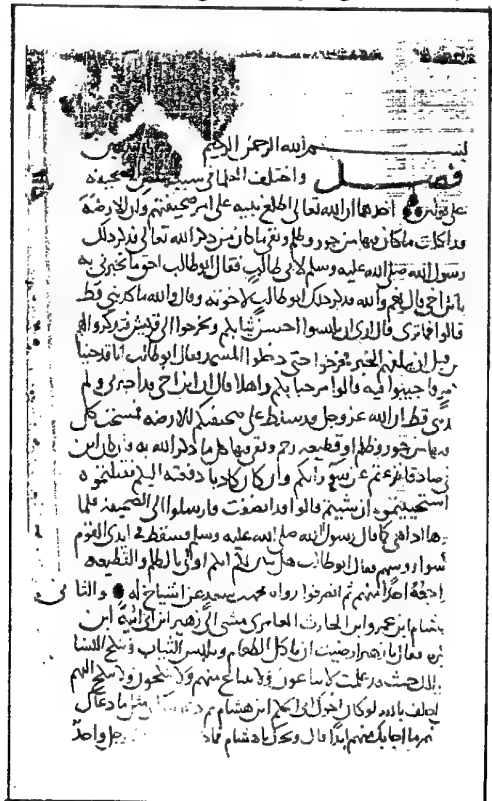 بسم الله الرحمن الرحيم
فصل واختلف العلماء في سبب نقض الصحيفة
على قولين احدهما ان الله تعالى اطلع نبيه على امر صحيفتهم وان الارضة
قد اكلت ما كان فيها من جور وظلم وبقي ما كان من ذكر الله تعالى فذكر ذلك
رسول الله صلى الله عليه وسلم لابي طالب فقال ابو طالب احق ما تخبرني به
يا بن اخي قال نعم والله فذكر ذلك ابو طالب لاخوته وقال والله ما كذبني قط
قالوا فما ترى قال ارى ان تلبسوا احسن ثيابكم وتخرجوا الى قريش فتذكروا لهم
قبل ان يبلغهم الخبر فخرجوا حتى دخلوا المسجد فقال ابو طالب انا قد جينا
فاجيبوا فيه قالوا مرحبا بكم واهلا قال ان ابن اخي قد اخبرني ولم
قط ان الله عز وجل قد سلط على صحيفتكم الارضة فمسحت كل
فيها من جور وظلم او قطيعة رحم وبقي فيها كل ما ذكر الله به فان كان ابن
اخي صادقا نزعتم عن سوء رأيكم وان كان كاذبا دفعته اليكم فقتلتموه
استحييتموه ان شيتم قالوا قد انصفت فارسلوا الى الصحيفة فلما
هي كما قال رسول الله صلى الله عليه وسلم فسقط في ايدي القوم
رؤسهم فقال ابو طالب هل لكم انكم اولى بالظلم والقطيعة
احد منهم ثم انصرفوا رواه محمد بن سعد عن اشياخ له والثاني
هشام ابن عمرو ابن الحارث العامري مشى الى زهير ابن ابي امية ابن
فقال يا زهير ارضيت ان تاكل الطعام وتلبس الثياب وتنكح النسا
حيث قد علمت لا يباعون ولا يبتاع منهم ولا ينكحون ولا ينكح اليهم
احلف بالله لو كان اخوال ابي الحكم ابن هشام ثم دعوته الى مثل ما دعاك
ما اجابك منهم ابدا قال ويحك يا هشام فماذا رجل واحد